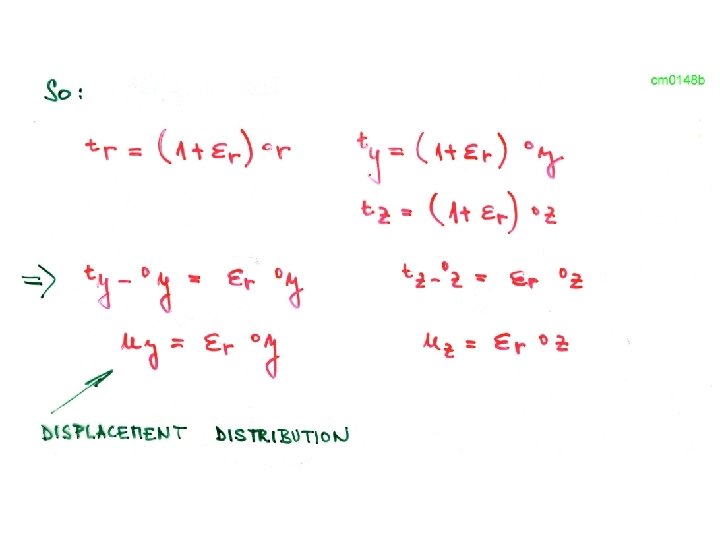 So:
cm0148b
ᵗr = (1+εᵣ) ⁰r    ᵗy = (1+εᵣ) ⁰y
ᵗz = (1+εᵣ) ⁰z
⇒ ᵗy - ⁰y = εᵣ ⁰y    ᵗz - ⁰z = εᵣ ⁰z
u_y = εᵣ ⁰y    u_z = εᵣ ⁰z
DISPLACEMENT DISTRIBUTION